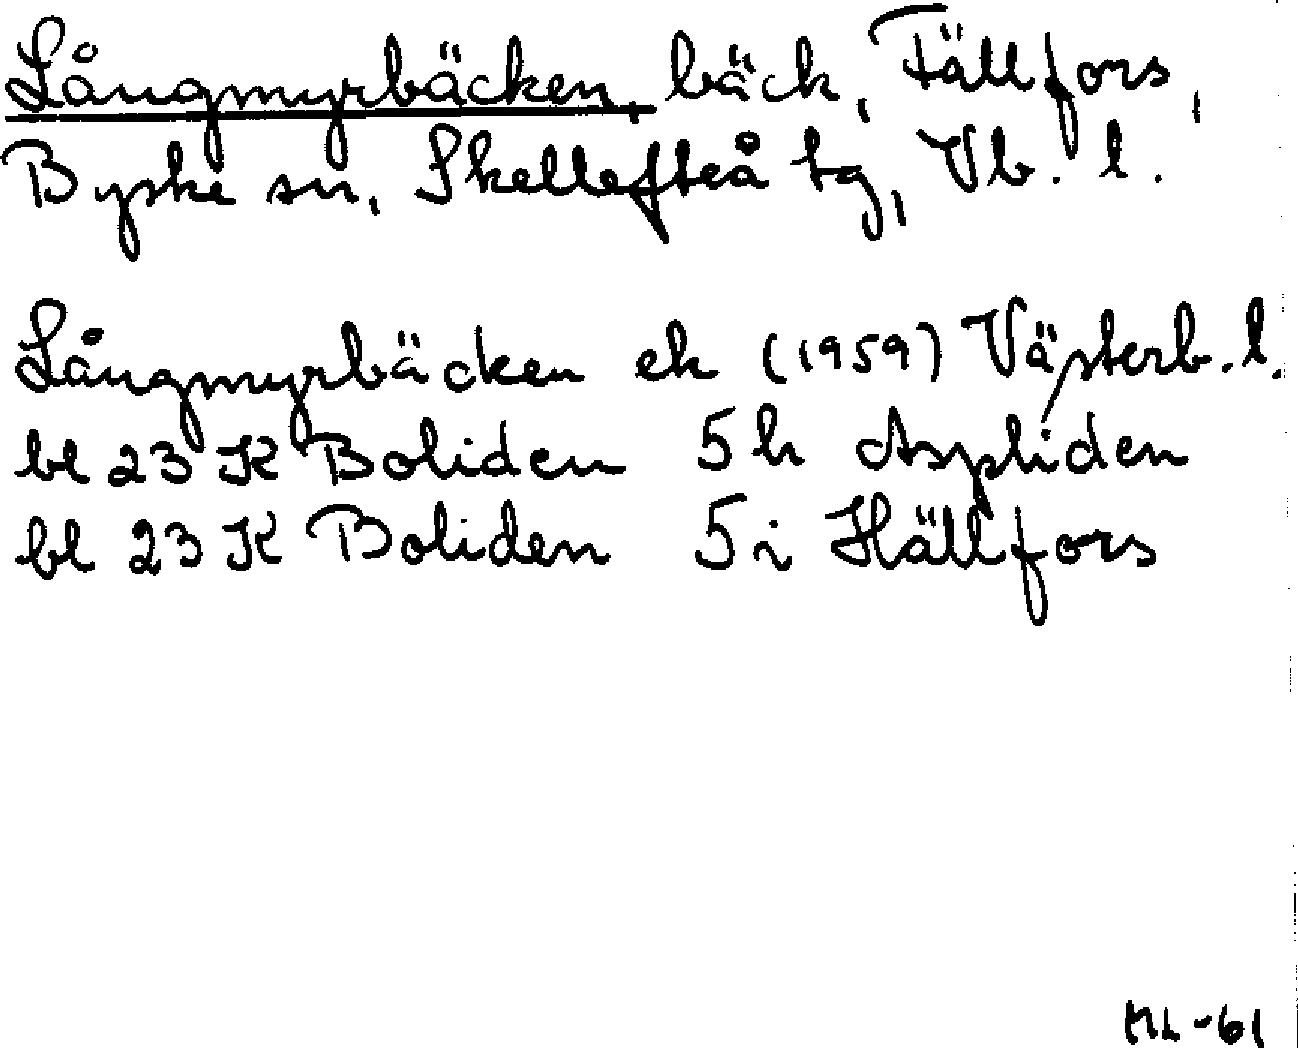 Långmyrbäcken, bäck, Fällfors,
Byske sn, Skellefteå tg, Vb. l.
Långmyrbäcken ek (1959) Västerb. l.
bl 23 K Boliden 5 h Aspliden
bl 23 K Boliden 5 i Hällfors
ML -61